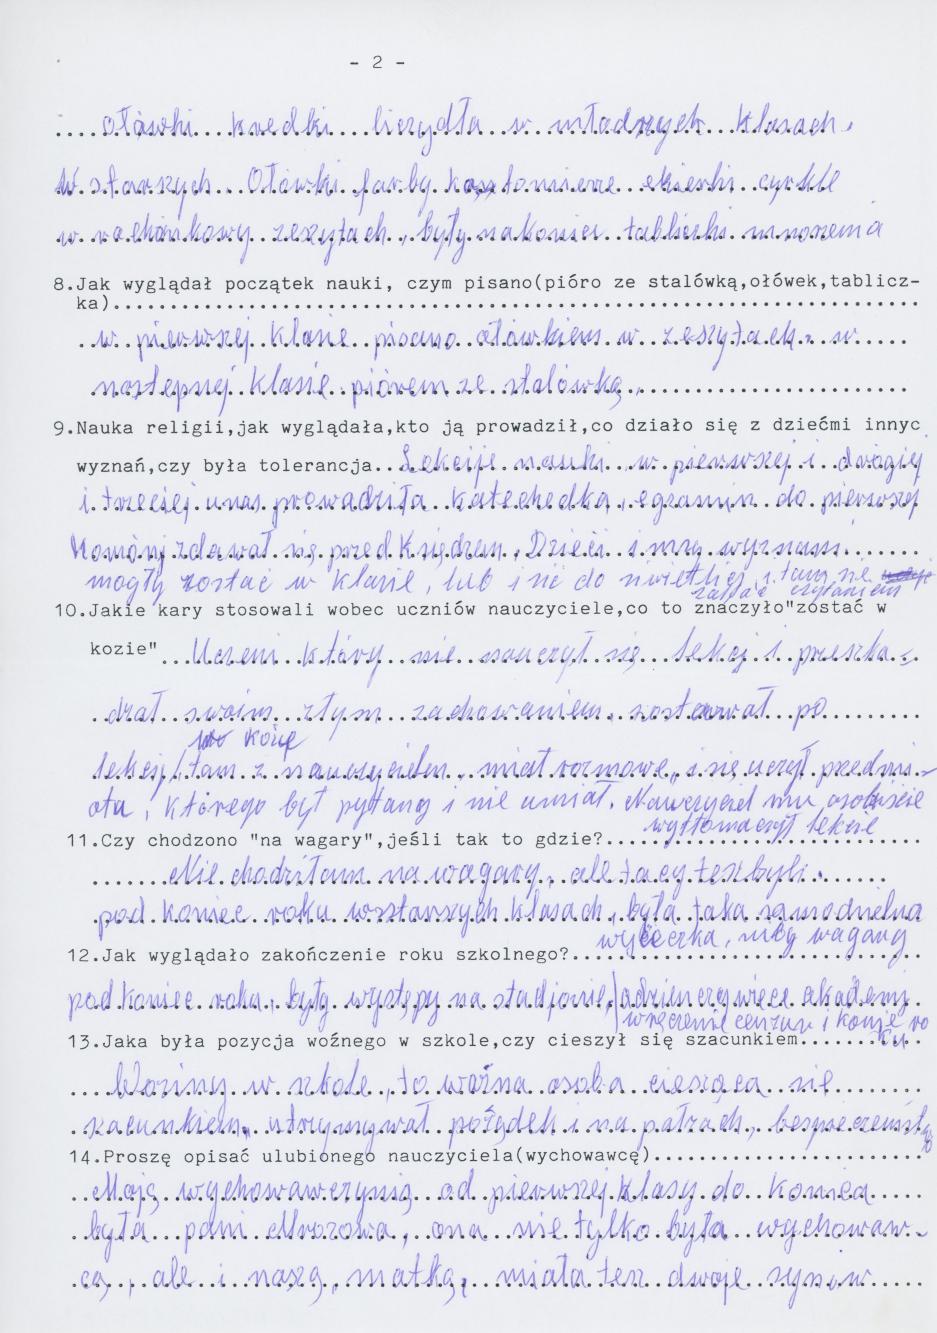 - 2 -
Ołówki kredki liczydła w młodszych klasach.
W starszych Ołówki farby kątomierze ekierki cyrkle
w rachunkowy zeszytach, były nakoniec tabliczki mnożenia
8.Jak wyglądał początek nauki, czym pisano(pióro ze stalówką,ołówek,tablicz-
ka)
w pierwszej klasie pisano ołówkiem w zeszytach. w
następnej klasie piórem ze stalówką.
9.Nauka religii,jak wyglądała,kto ją prowadził,co działo się z dziećmi innyc
wyznań,czy była tolerancja. Lekcije nauki w pierwszej i drógiej
i trzeciej unas prowadziła katechedka, egzamin do pierwszej
Komónij zdawał się przed Księdzem. Dzieci
mogły zostać w klasie, lub iść do świetlicy, i tam się
zająć czytaniem
10.Jakie kary stosowali wobec uczniów nauczyciele,co to znaczyło"zostać w
kozie" Uczeń który nie nauczył się lekcj i przeszka-
dzał swoim złym zachowaniem, zostawał po
w kozię
lekcji/tam z nauczycielem, miał rozmowę, i się uczył przedmi-
otu, którego był pytany i nie umiał. Nauczyciel mu osobiście
wytłomaczył lekcie
11.Czy chodzono "na wagary",jeśli tak to gdzie?
Nie chodziłam na wagary, ale tacy też byli.
pod koniec roku wstarszych klasach, była taka samodzielna
wycieczka, niby wagary
12.Jak wyglądało zakończenie roku szkolnego?
pod koniec roku, były występy na stadjonie, adzień czy więcę akademj
wręczenie cenzur i koniec ro
ku
13.Jaka była pozycja woźnego w szkole,czy cieszył się szacunkiem
Woźny w szkole, to ważna osoba ciesząca się
szacunkiem, utrzymywał pożądek i na patrach, bezpieczeńst
wo
14.Proszę opisać ulubionego nauczyciela(wychowawcę)
Moją wychowawczynią od pierwszej klasy do końca
była pani Mrozowa, ona nie tylko była wychowaw-
cą, ale i naszą matką, miała też dwoje synów